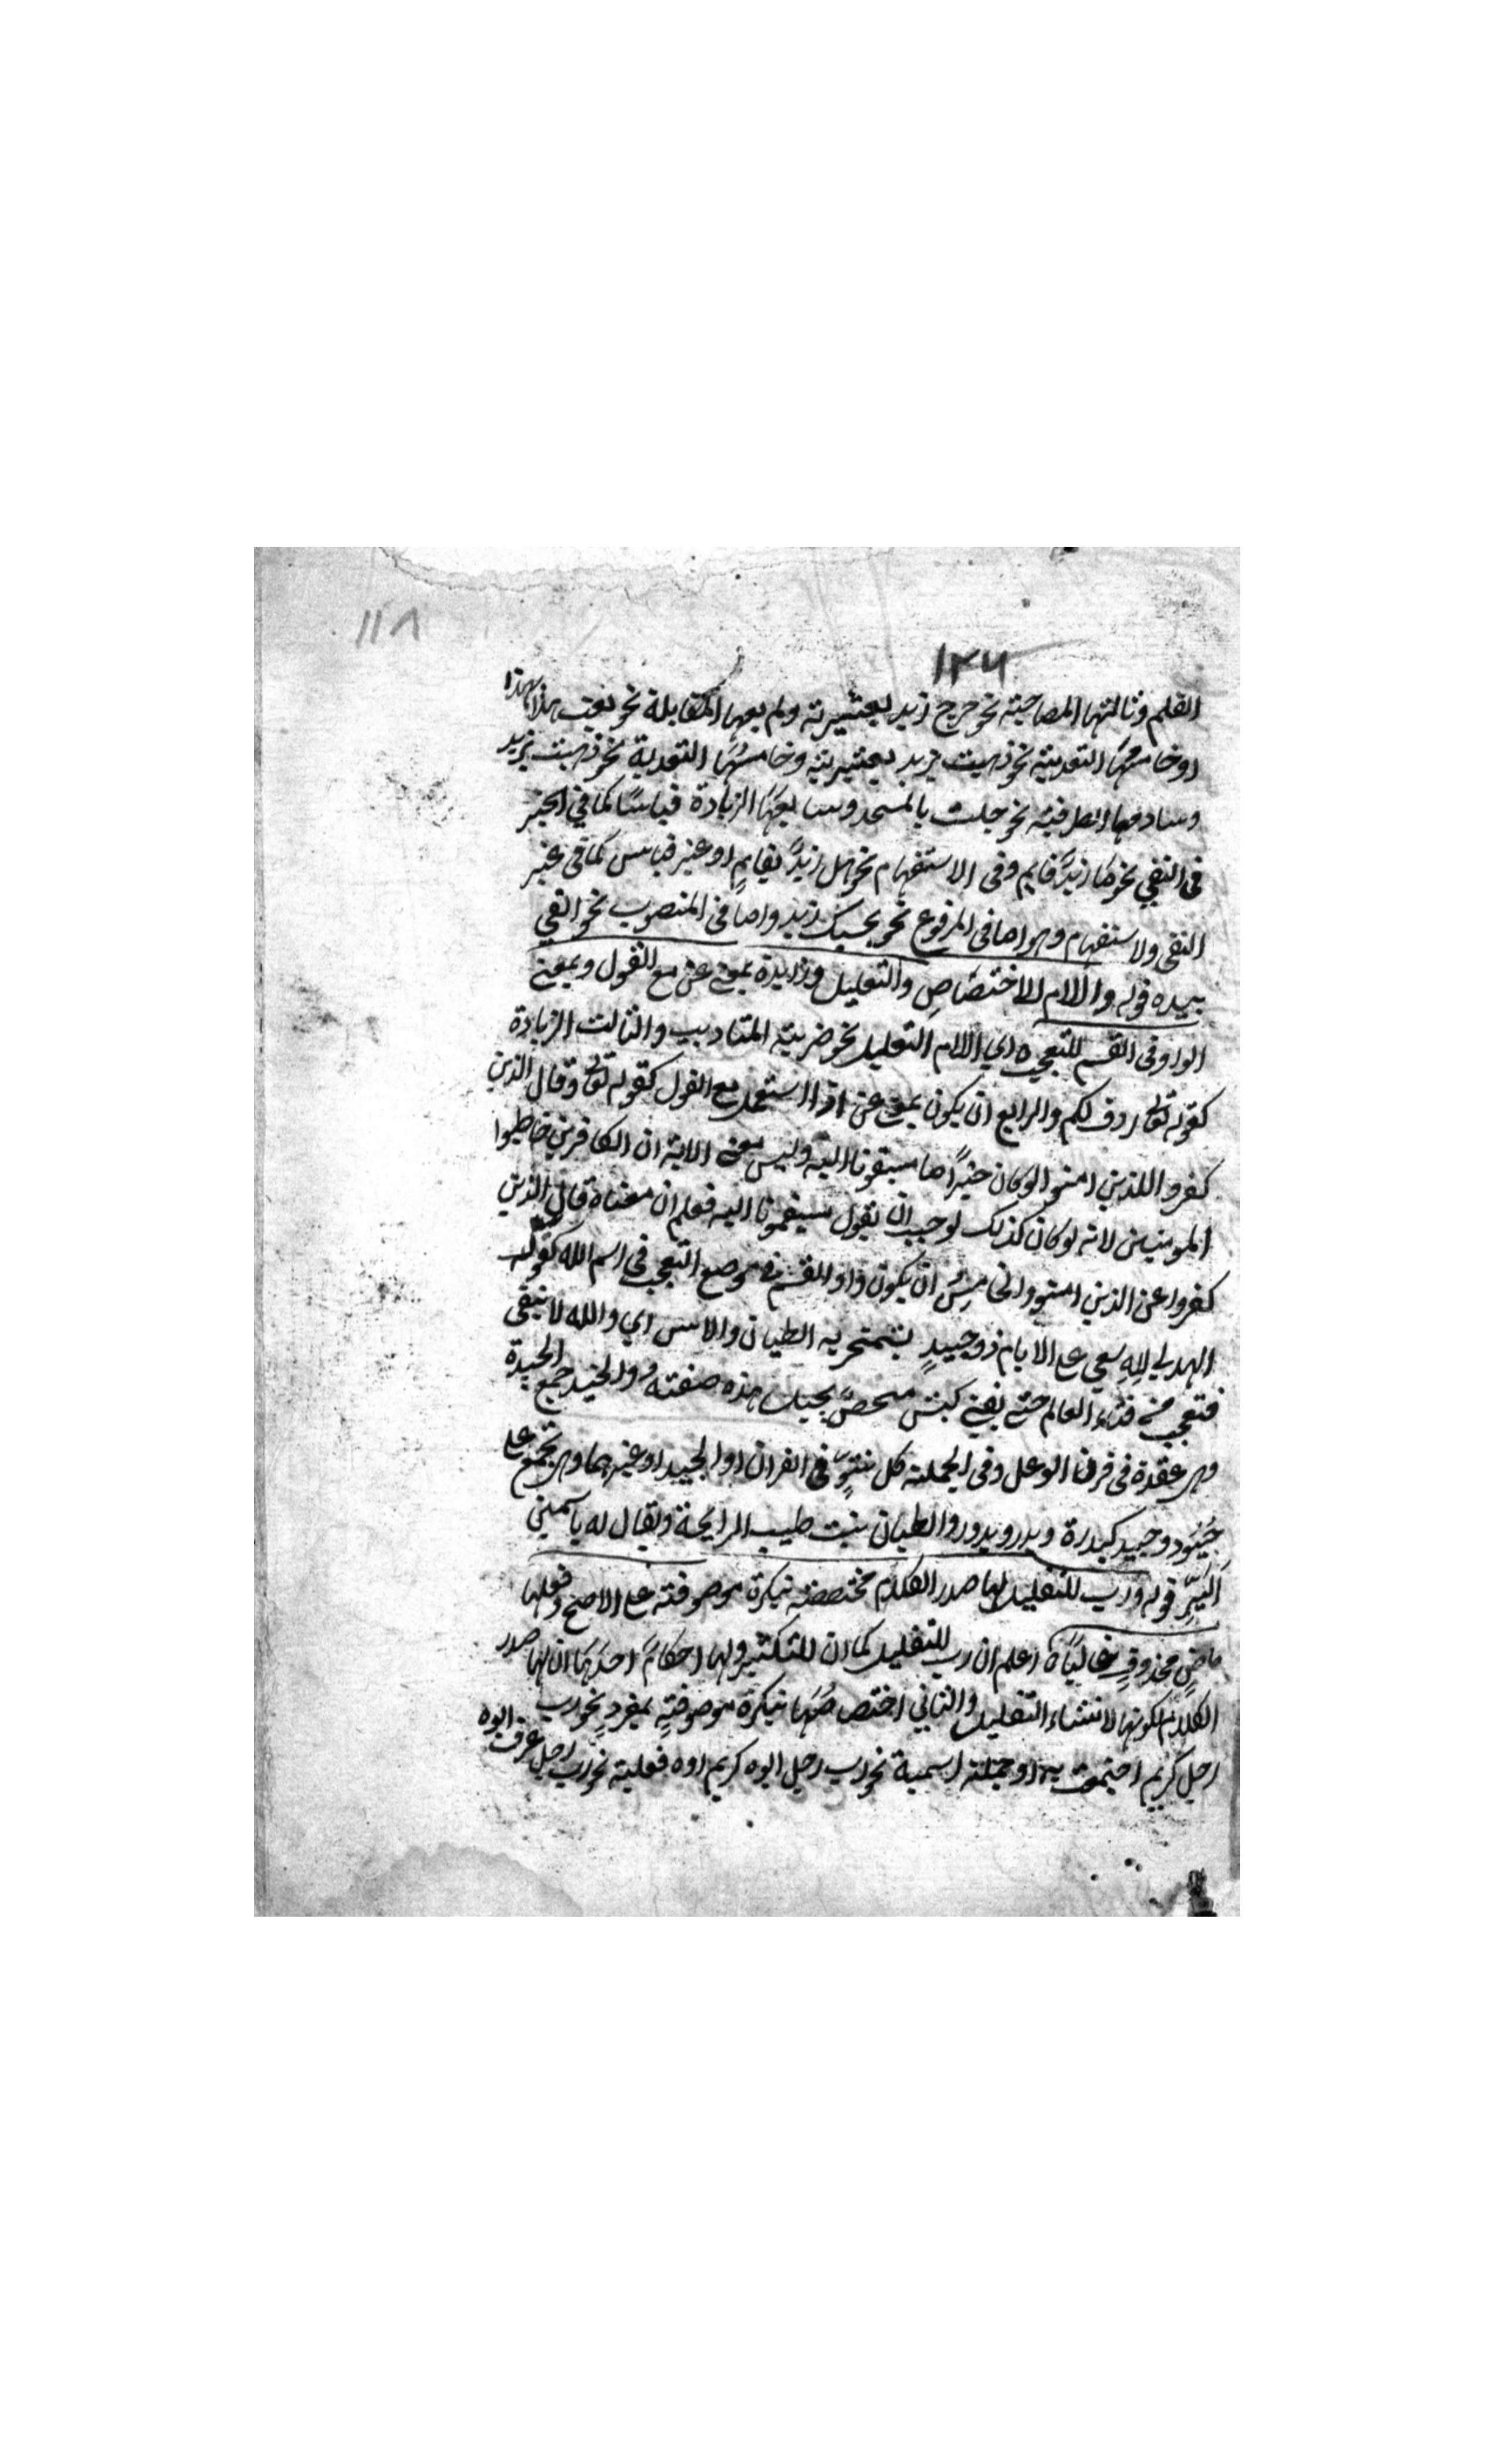 ١١٨
١٢٦
القلم وثالثها المصاحبة نحو خرج زيد بعشيرته ورابعها المقابلة نحو بعت هذا بهذا
او خامسها التعدية نحو ذهبت بزيد بعشيرته وخامسها التعدية نحو ذهبت بزيد
وسادسها الظرفية نحو جلست بالمسجد وسابعها الزيادة قياسًا كما في الخبر
في النفي نحو ما زيدٌ قايم وفي الاستفهام نحو هل زيدٌ بقايمٍ او غير قياس كما في غير
النفي ولاستفهام وهو اما في المرفوع نحو بحسبك زيد واما في المنصوب نحو القي
بيده قوله واللام للاختصاصِ والتعليل وزايدة بمعنى عن مع القول وبمعنى
الواو في القسم للتعجب ه اي اللام التعليل نحو ضربته للتاديب والثالث الزيادة
كقوله تعالى ردف لكم والرابع ان يكون بمعنى عن اذا استعمل مع القول كقوله تعالى وقال الذين
كفروا للذين امنوا لو كان خيرًا ما سبقونا اليه وليس معنى الاية ان الكافرين خاطبوا
المومنين لانه لو كان كذلك لوجب ان يقول سبقتمونا اليه فعلم ان معناه قال الذين
كفروا عن الذين امنوا والخامسُ ان يكون واو القسم في موضع التعجب في اسم الله كقول
الهدلي للهِ يبقى على الايام ذو حيدٍ بمشمخر به الظيان والاس اي والله لا يبقى
فتعجب من فناء العالم حتى يفنى كبش هذه صفته والحيد جمع الحيدة
وهي عقدة في قرن الوعل وفي الجملة كل نتوٍ في القران او الجيد او غيرهما وهي تجمع على
حُيُود وحيد كبدرة وبدر وبدور والظيان نبت طيب الرايحة ويقال له ياسمين
البرّ قوله ورب للتقليل لها صدر الكلام مختصة بنكرة موصوفة على الاصح وفعلها
ماضٍ محذوف غالبًا ه اعلم ان رب للتقليل كما ان للتكثير ولها احكامٌ احدها ان لها صدر
الكلام لكونها لانشاء التقليل والثاني اختصاصُها بنكرة موصوفةٍ بمفردٍ نحو رب
رجل كريم او جملة اسمية نحو رب رجل ابوه كريم او فعلية نحو رب رجل عرف ابوه